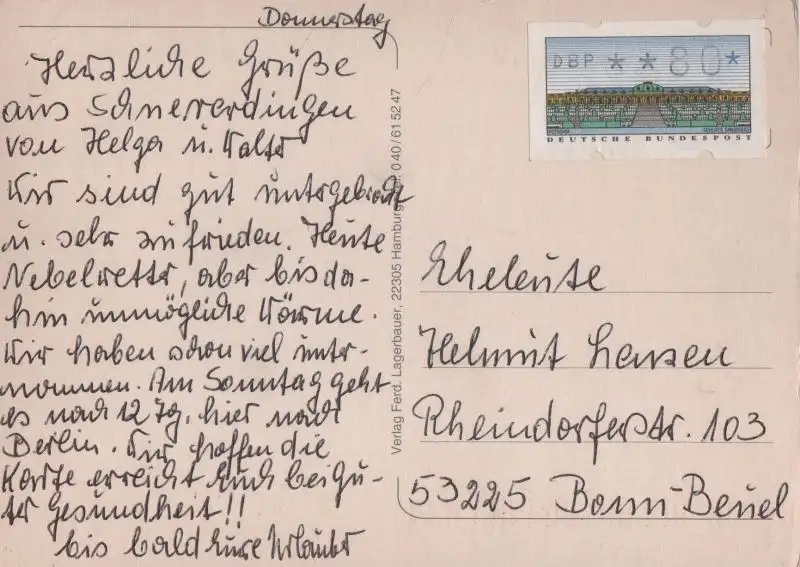 Donnerstag
Herzliche Grüße
aus Schneverdingen
von Helga u. Walter
Wir sind gut untergebracht
u. sehr zufrieden. Heute
Nebelwetter, aber bisda-
hin unmögliche Wärme.
Wir haben schon viel unter-
nommen. Am Sonntag geht
es nach 12 Tg. hier nach
Berlin. Wir hoffen die
Karte erreicht Euch bei gu-
ter Gesundheit!!
bis bald Eure Urlauber
Verlag Ferd. Lagerbauer, 22305 Hamburg, 040/61 52 47
DBP * * 80*
DEUTSCHE BUNDESPOST
Eheleute
Helmut Lensen
Rheindorferstr. 103
53225 Bonn-Beuel